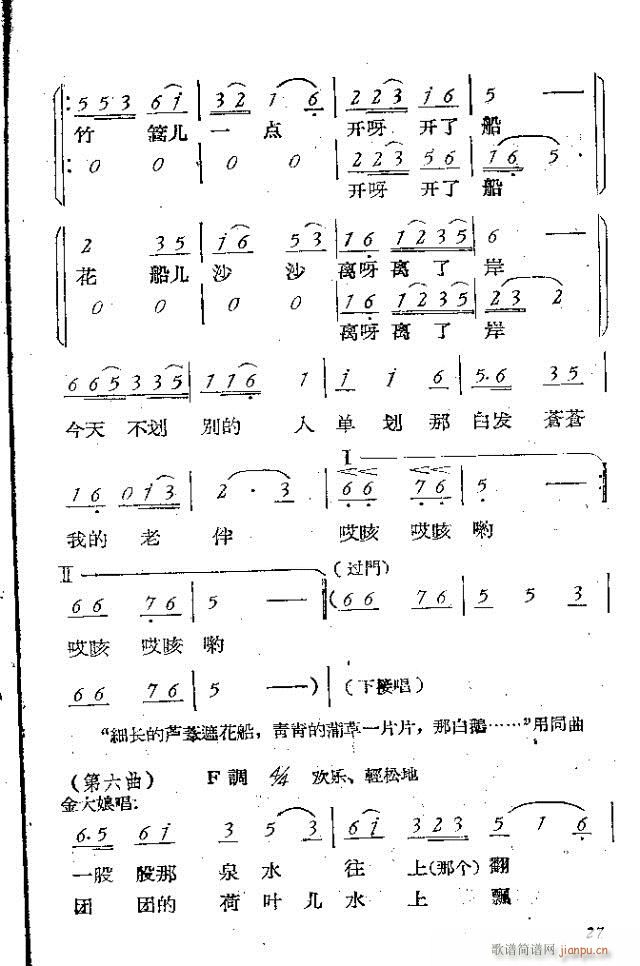 5 5 3 6 i | 3 2 1 6 | 2 2 3 i 6 | 5 —
竹 篙儿 一 点 开呀 开了 船
0 0 | 0 0 | 2 2 3 5 6 | 1 6 5
开呀 开了 船
2 3 5 | i 6 5 3 | 1 6 1 2 3 5 | 6 —
花 船儿 沙 沙 离呀 离 了 岸
0 0 | 0 0 | 1 6 1 2 3 5 | 2 3 2
离呀 离 了 岸
6 6 5 3 3 5 | 1 1 6 1 | i i 6 | 5·6 3 5
今天 不划 别的 人 单 划 那 白发 苍苍
I
1 6 0 i 3 | 2 · 3 | 6 6 7 6 | 5 —
我的 老 伴 哎咳 哎咳 哟
II (过門)
6 6 7 6 | 5 — (6 6 7 6 | 5 5 3
哎咳 哎咳 哟
6 6 7 6 | 5 —) | (下接唱)
“細长的芦葦遮花船，青青的蒲草一片片，那白鵝……”用同曲
(第六曲) F調 4/4 欢乐、輕松地
金大娘唱：
6·5 6 i 3 5 3 | 6 i 3 2 3 5 1 6
一股 股那 泉 水 往 上(那个) 翻
团 团的 荷 叶 儿 水 上 飄
27
歌谱简谱网 jianpu.cn